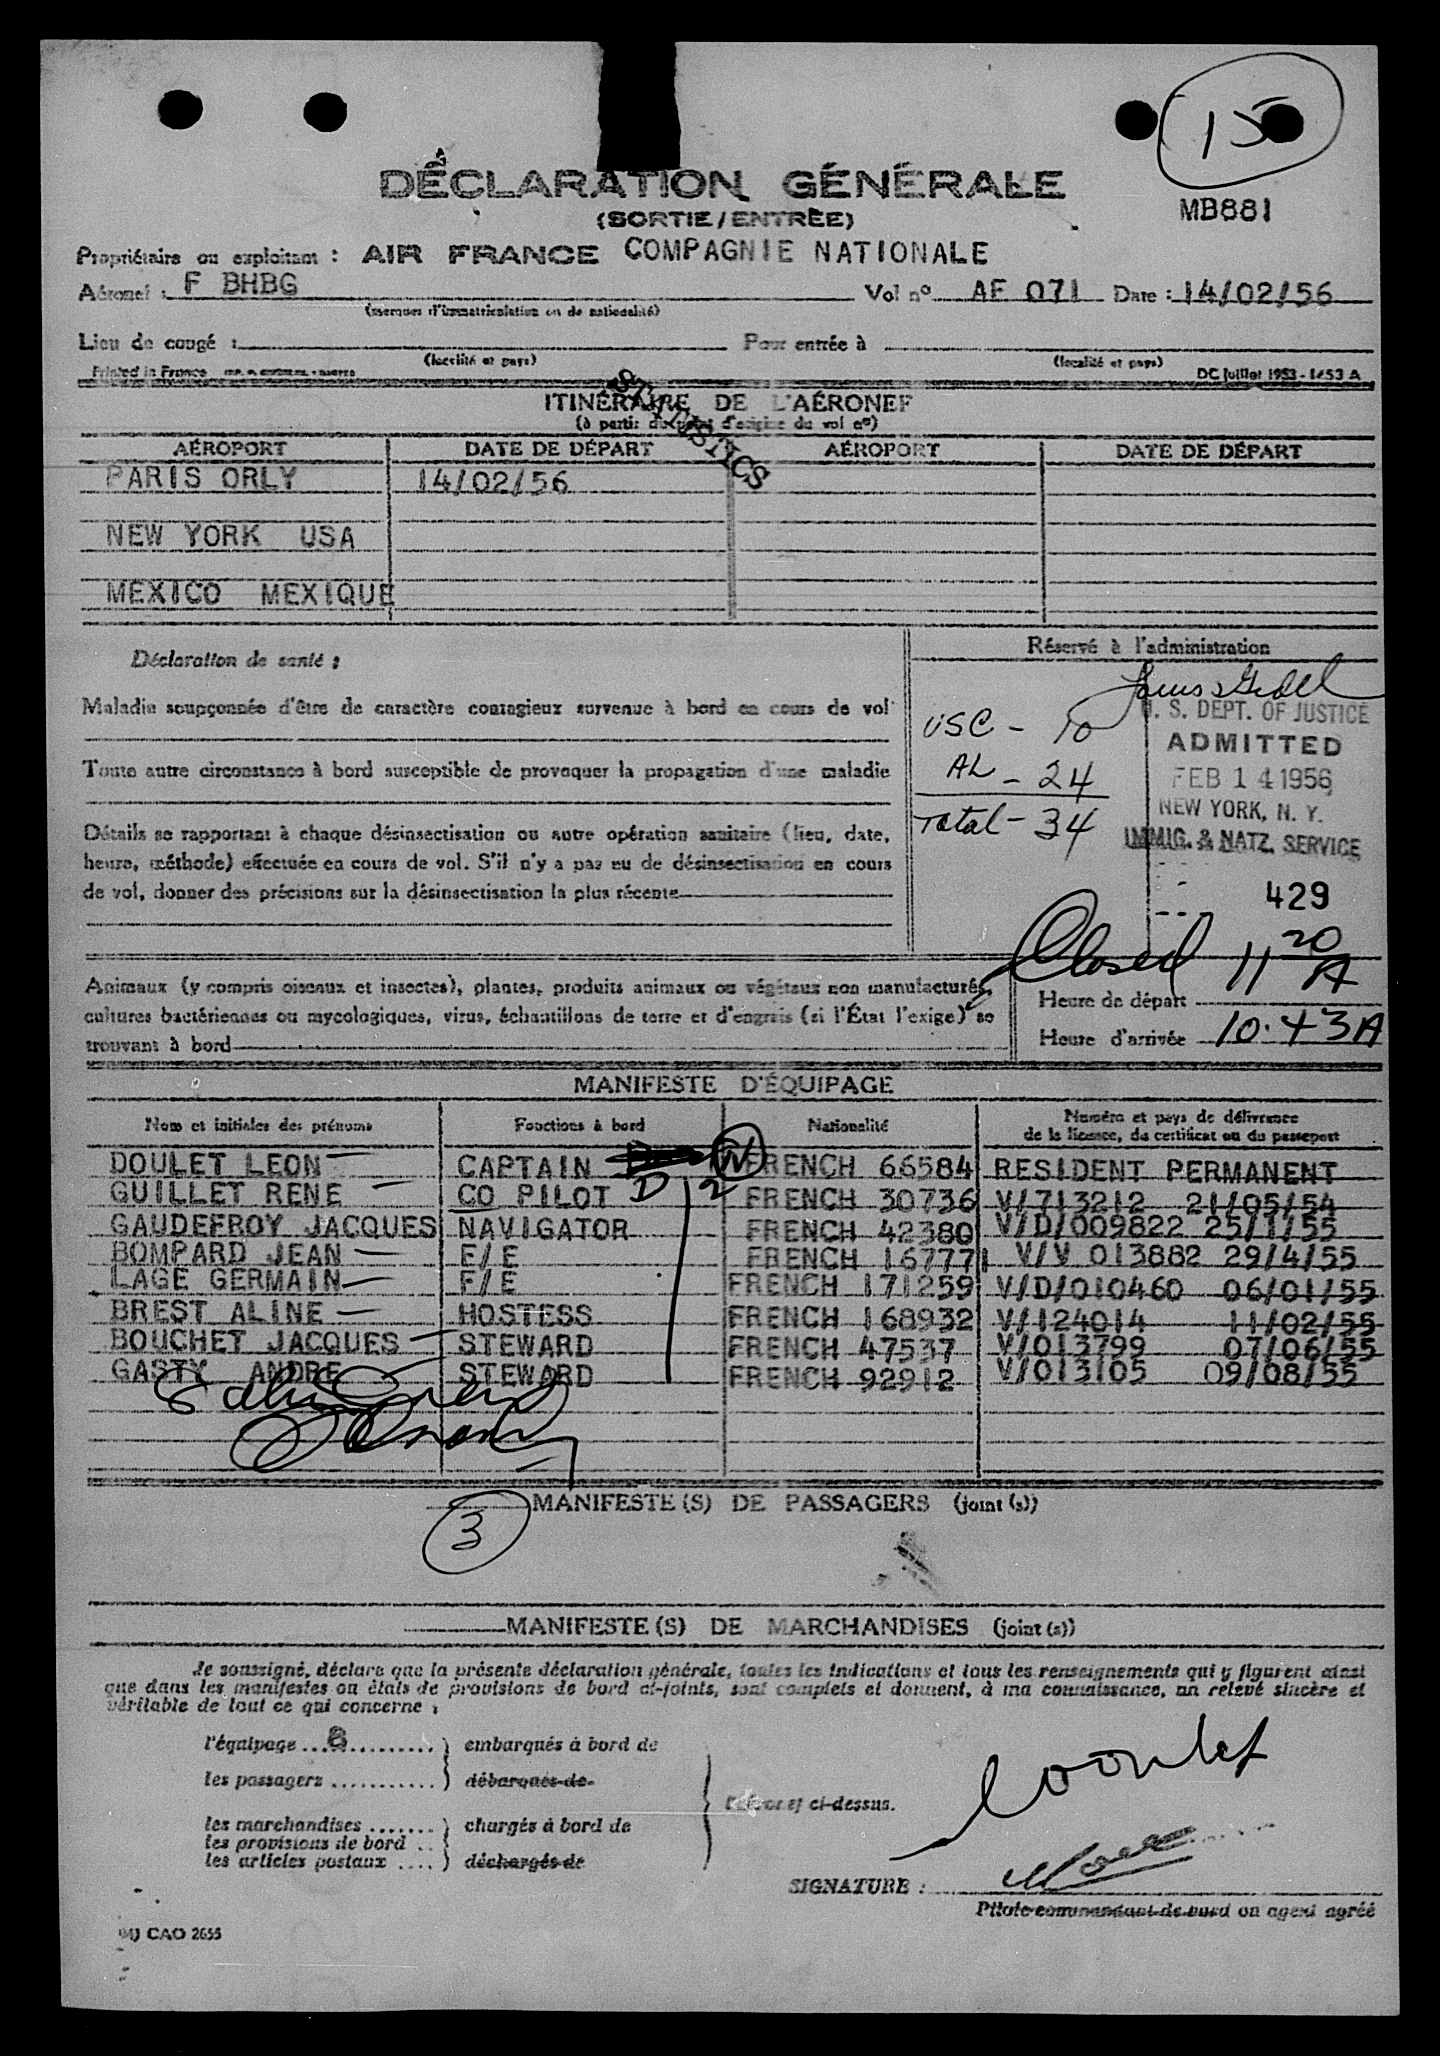 15
DÉCLARATION GÉNÉRALE
MB881
(SORTIE/ENTRÉE)
Propriétaire ou exploitant : AIR FRANCE COMPAGNIE NATIONALE
Aéronef : F BHBG Vol nº AF 071 Date : 14/02/56
(marques d'immatriculation ou de nationalité)
Lieu de congé : Pour entrée à
(localité et pays) (localité et pays)
Printed in France DC Juillet 1953 - 1453 A
STATISTICS
ITINÉRAIRE DE L'AÉRONEF
(à partir du point d'origine du vol nº)
AÉROPORT DATE DE DÉPART AÉROPORT DATE DE DÉPART
PARIS ORLY 14/02/56
NEW YORK USA
MEXICO MEXIQUE
Déclaration de santé :
Réservé à l'administration
Maladie soupçonnée d'être de caractère contagieux survenue à bord en cours de vol
Toute autre circonstance à bord susceptible de provoquer la propagation d'une maladie
Détails se rapportant à chaque désinsectisation ou autre opération sanitaire (lieu, date,
heure, méthode) effectuée en cours de vol. S'il n'y a pas eu de désinsectisation en cours
de vol, donner des précisions sur la désinsectisation la plus récente
USC - 10
AL - 24
Total - 34
U. S. DEPT. OF JUSTICE
ADMITTED
FEB 14 1956
NEW YORK, N. Y.
IMMIG. & NATZ. SERVICE
429
Closed 11 20 A
Animaux (y compris oiseaux et insectes), plantes, produits animaux ou végétaux non manufacturés,
cultures bactériennes ou mycologiques, virus, échantillons de terre et d'engrais (si l'État l'exige) se
trouvant à bord
Heure de départ
Heure d'arrivée 10.43A
MANIFESTE D'ÉQUIPAGE
Nom et initiales des prénoms Fonctions à bord Nationalité Numéro et pays de délivrance
de la licence, du certificat ou du passeport
DOULET LEON CAPTAIN N FRENCH 66584 RESIDENT PERMANENT
GUILLET RENE CO PILOT D 12 FRENCH 30736 V/713212 21/05/54
GAUDEFROY JACQUES NAVIGATOR FRENCH 42380 V/D/009822 25/1/55
BOMPARD JEAN F/E FRENCH 167771 V/V 013882 29/4/55
LAGE GERMAIN F/E FRENCH 171259 V/D/010460 06/01/55
BREST ALINE HOSTESS FRENCH 168932 V/124014 11/02/55
BOUCHET JACQUES STEWARD FRENCH 47537 V/013799 07/06/55
GASTY ANDRE STEWARD FRENCH 92912 V/013105 09/08/55
MANIFESTE(S) DE PASSAGERS (joint (s))
3
MANIFESTE(S) DE MARCHANDISES (joint (s))
Je soussigné, déclare que la présente déclaration générale, toutes les indications et tous les renseignements qui y figurent ainsi
que dans les manifestes ou états de provisions de bord ci-joints, sont complets et donnent, à ma connaissance, un relevé sincère et
véritable de tout ce qui concerne :
l'équipage 8 embarqués à bord de
les passagers débarqués de
l'aéronef ci-dessus.
les marchandises chargés à bord de
les provisions de bord
les articles postaux déchargés de
SIGNATURE :
Pilote commandant de bord ou agent agréé
CAO 2655